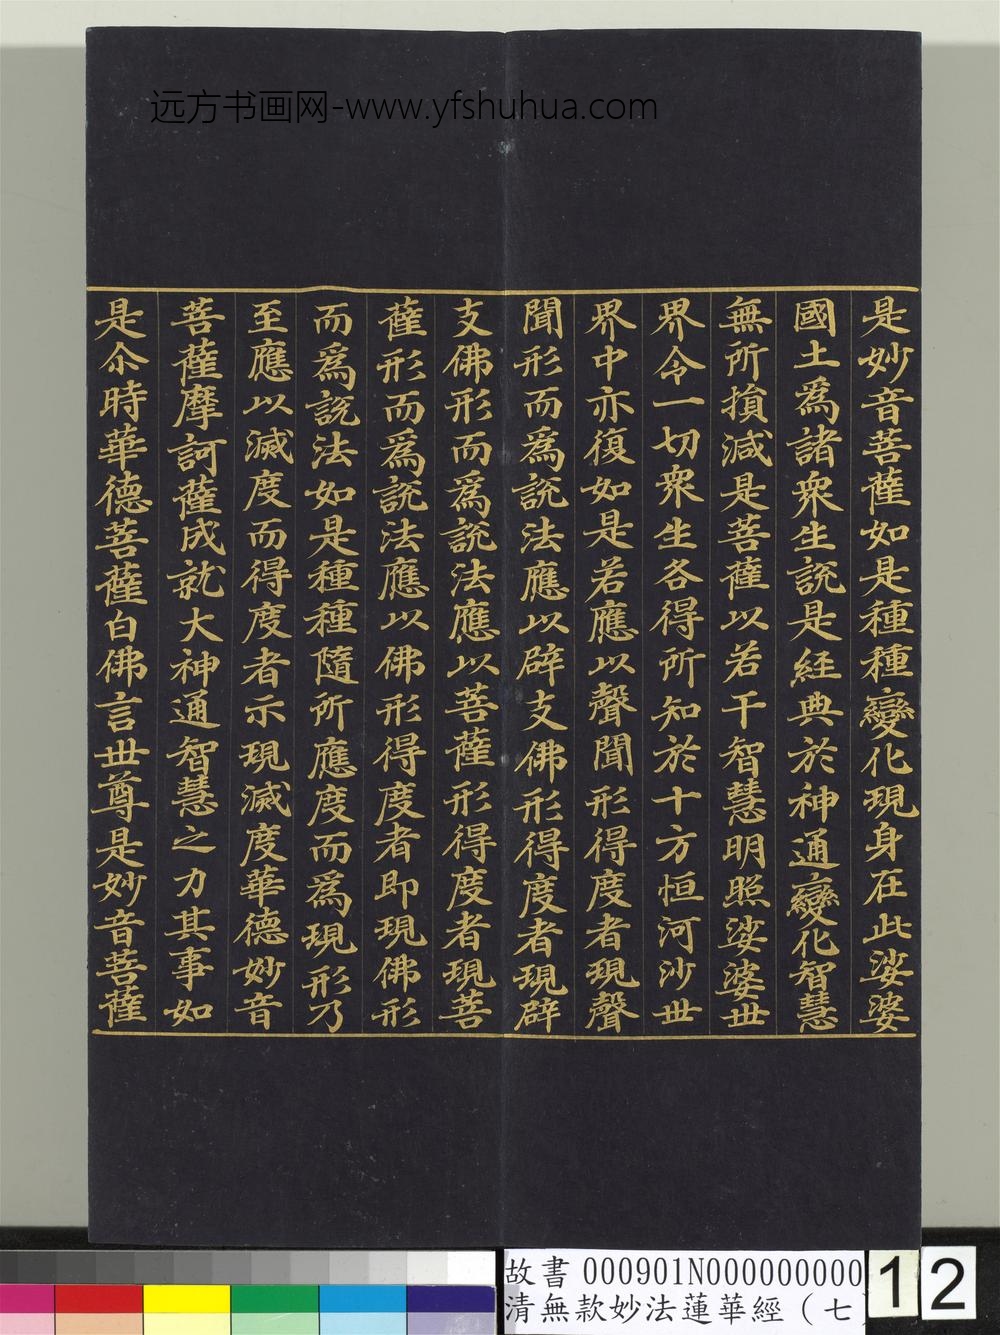 远方书画网-www.yfshuhua.com
是妙音菩薩如是種種變化現身在此娑婆
國土為諸衆生說是經典於神通變化智慧
無所損減是菩薩以若干智慧明照娑婆世
界令一切衆生各得所知於十方恒河沙世
界中亦復如是若應以聲聞形得度者現聲
聞形而為說法應以辟支佛形得度者現辟
支佛形而為說法應以菩薩形得度者現菩
薩形而為說法應以佛形得度者即現佛形
而為說法如是種種隨所應度而為現形乃
至應以滅度而得度者示現滅度華德妙音
菩薩摩訶薩成就大神通智慧之力其事如
是尒時華德菩薩白佛言世尊是妙音菩薩
故書 000901N000000000
清無款妙法蓮華經（七
12